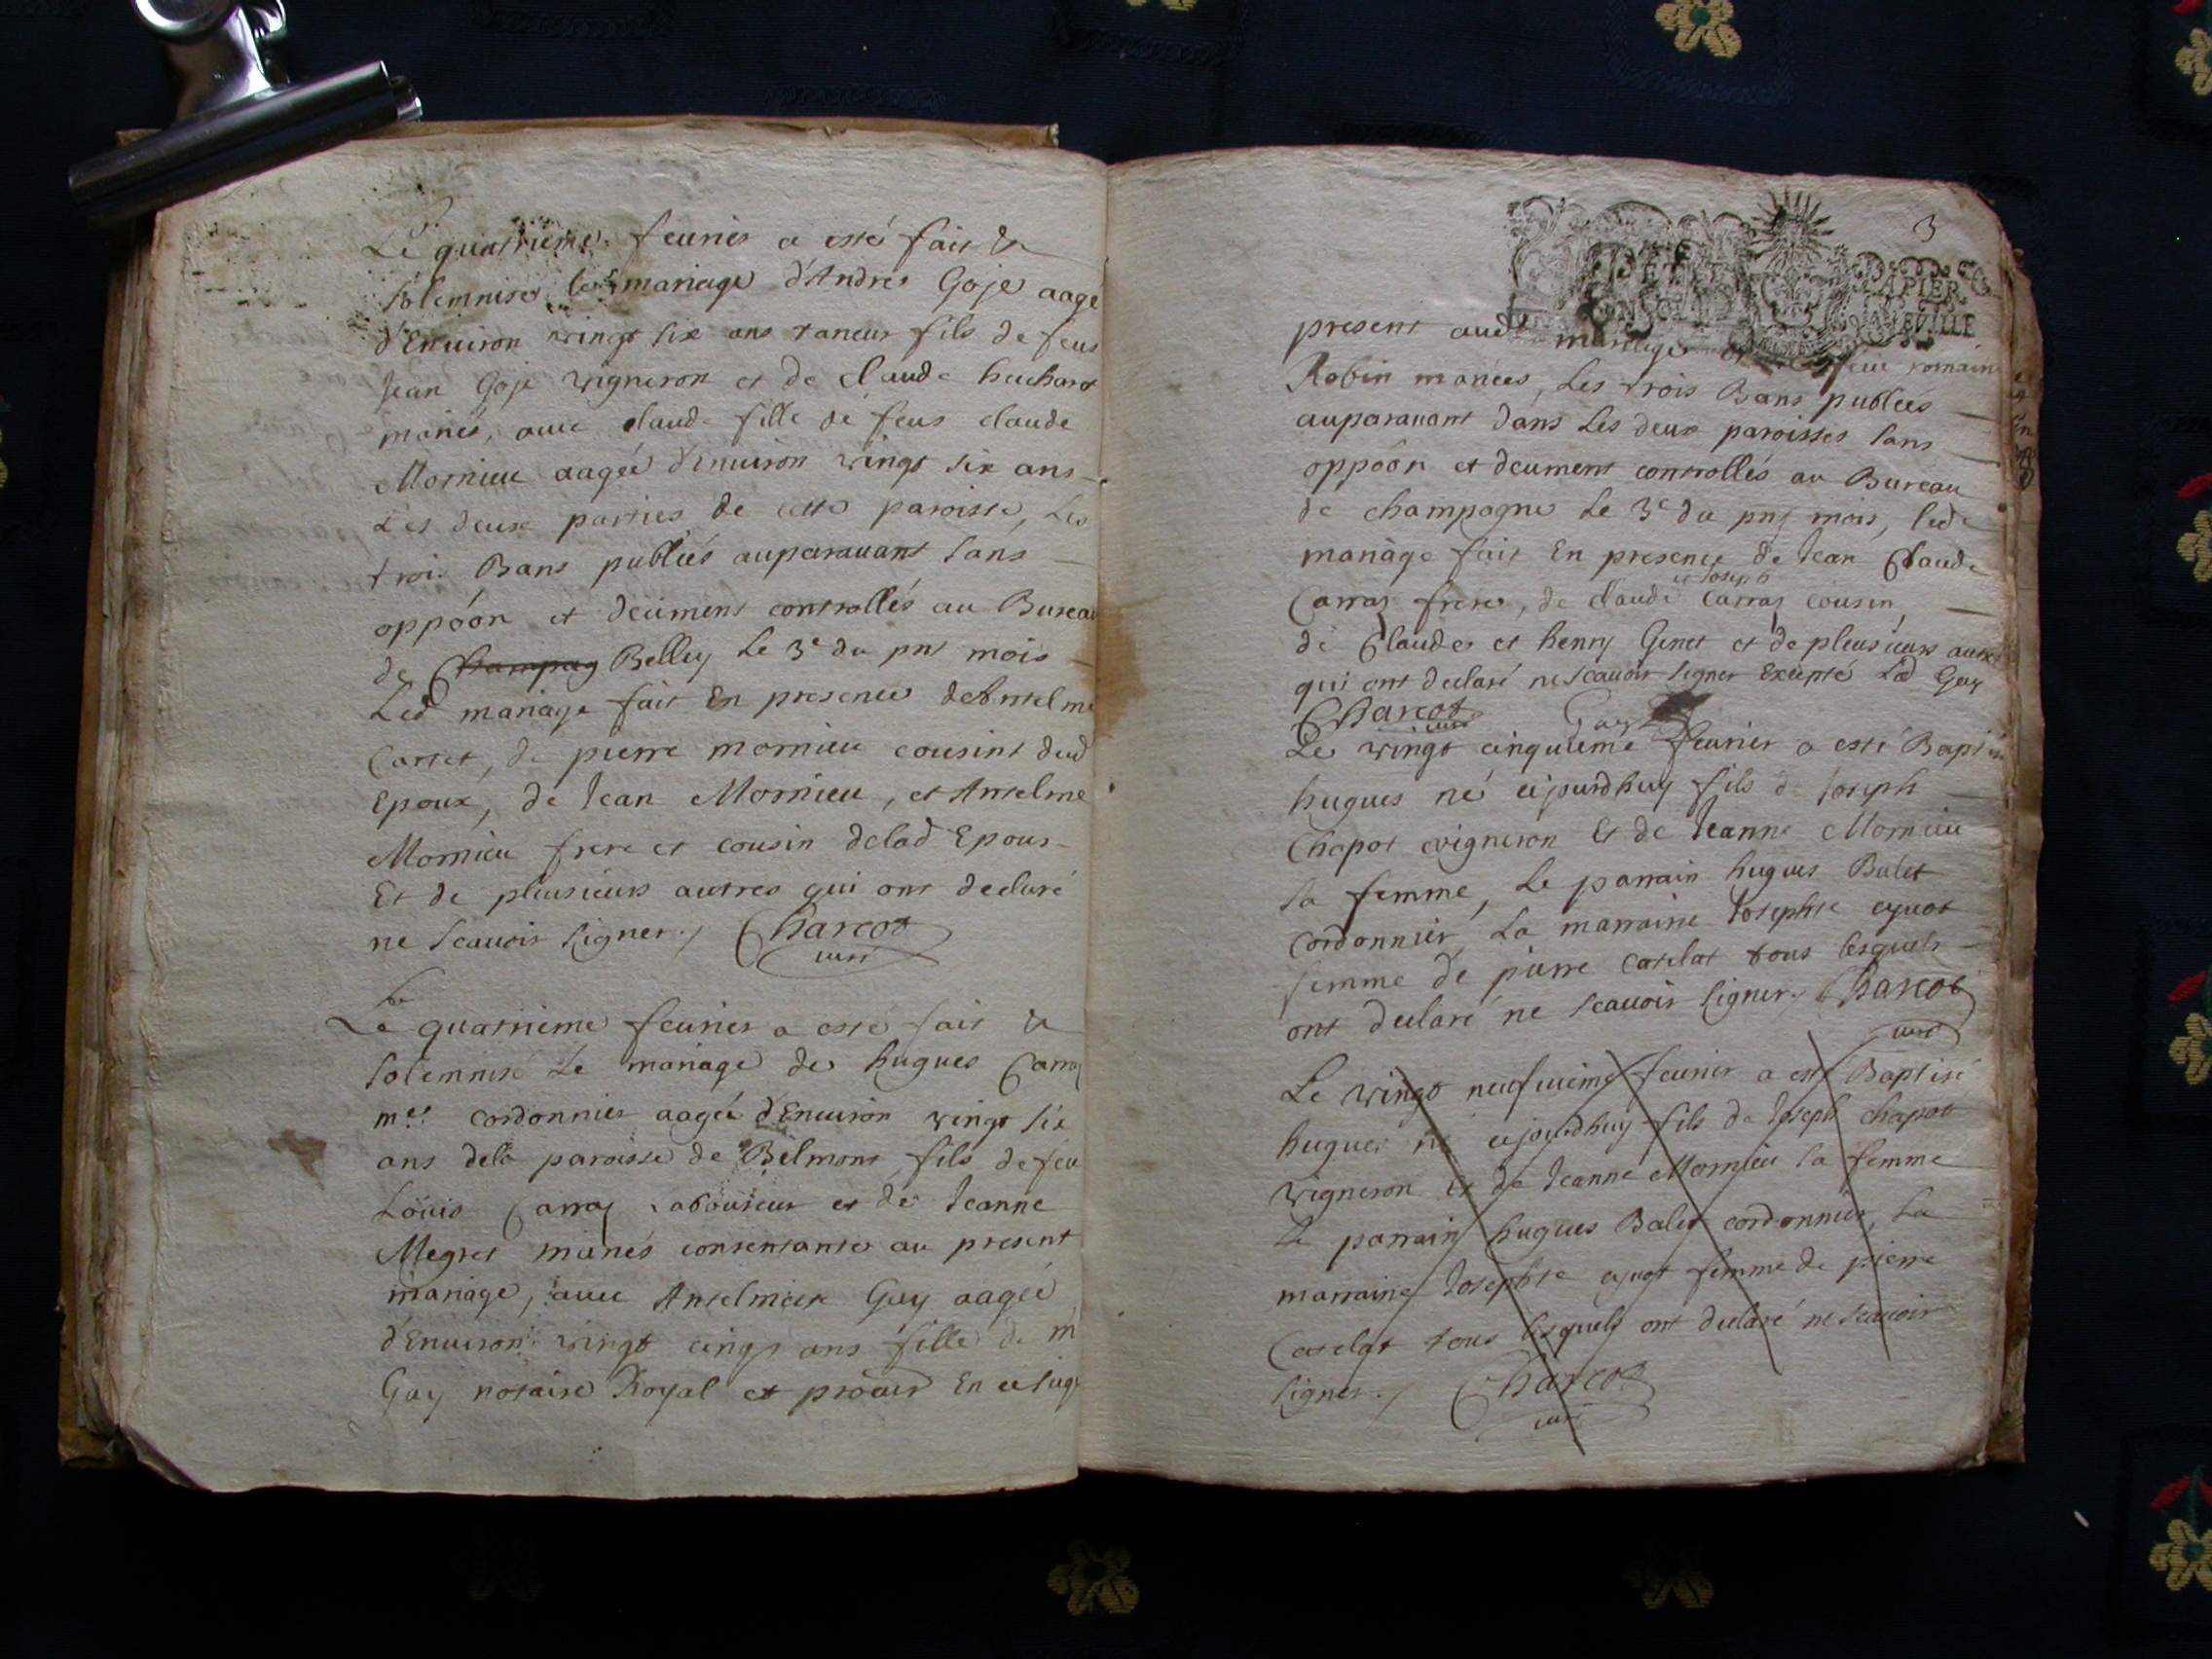 Le quatrieme feurier a esté fait &
solemnisé le mariage d'Andre Goje aagé
d'Enuiron vingt six ans taneur fils de feus
Jean Goje vigneron et de Claude
mariés, auec claude fille de feus claude
Mornieu aagée d'Enuiron vingt six ans
Les deux parties de cette paroisse, Les
trois Bans publiés auparauant sans
oppóon et deüment controllés au Bureau
de Champag Belley Le 3e du pnt mois
Led mariage fait En presence deAntelme
Cartet, de pierre mornieu cousint dud
Epoux, de Jean Mornieu, et Antelme
Mornieu frere et cousin delad Epouse
Et de pleusieurs autres qui ont declaré
ne scauoir signer./ Charcot
curé
Le quatrieme feurier a esté fait &
solemnisé Le mariage de hugues Carraz
me cordonnier aagée d'Enuiron vingt six
ans dela paroisse de Belmont fils de feu
Loüis Carraz laboureur et de Jeanne
Megret mariés consentante au present
mariage, auec Antelmeie Guy aagée
d'Enuiron vingt cinqt ans fille de m
Guy notaire Royal et procur En ce siege
3
PAPIER
present aud mariage et feue romaine
Robin mariées, Les trois Bans publiées
auparauant dans Les deux paroisses sans
oppóon et deument controllés au Bureau
de champagne Le 3e du pnt mois, led
mariage fait En presence de Jean Claude
Carraz frere, de claude et Joseph Carraz cousin
de Claude et henry Genet et de pleusieurs autres
qui ont declaré ne scauoir signer Excepté Led Guy
Charcot curé Guy
Le vingt cinquieme feurier a esté Baptisé
hugues né cejourdhuy fils de Joseph
Chapot vigneron Et de Jeanne Mornieu
sa femme, Le parrain hugues Balet
cordonnier, La marraine Josephte
femme de pierre Catelat tous lesquels
ont declaré ne scauoir signer./ Charcot
curé
Le vingt neufuieme feurier a esté Baptisé
hugues né cejourdhuy fils de Joseph chapot
vigneron Et de Jeanne Mornieu sa femme
Le parrain hugues Balet cordonnier, La
marraine Josephte femme de pierre
Catelat tous lesquels ont declaré ne scauoir
signer./ Charcot
curé